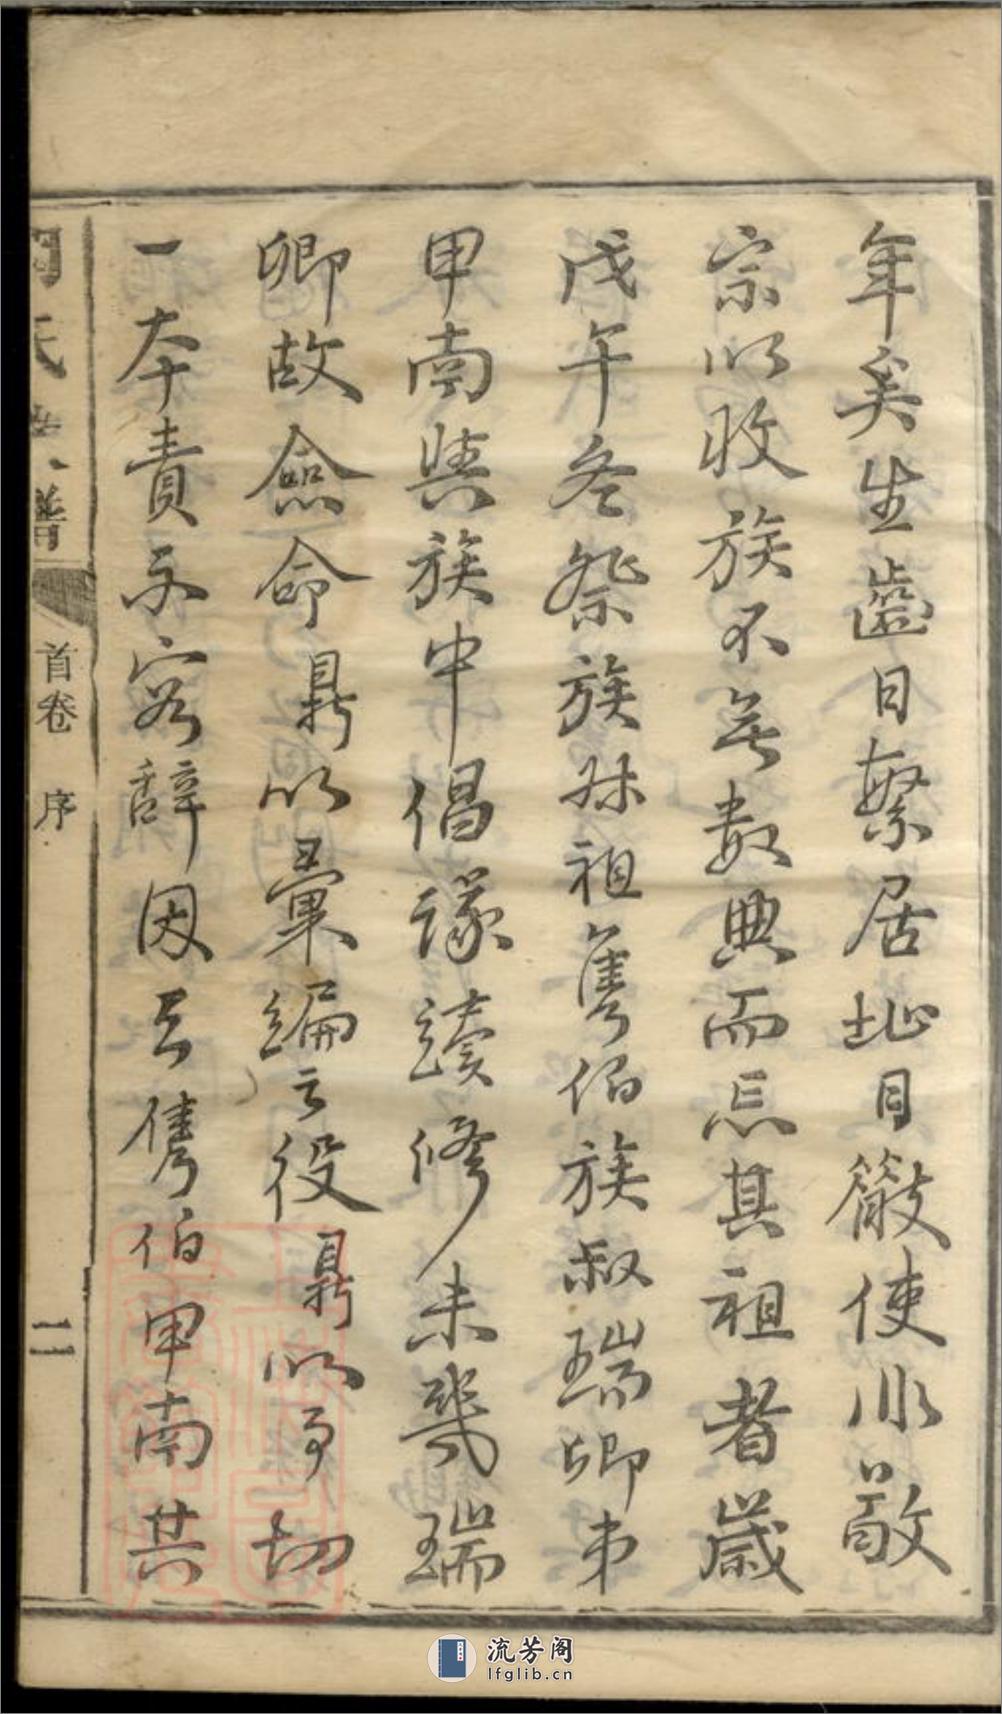 年矣生齒日繁居址日散使非敬
宗以收族不無數典而忘其祖者歲
戊午冬祭族叔祖雋伯族叔瑞卿弟
甲南與族中倡議續修未幾瑞
卿故僉命鼎以彙編之役鼎以事切
一本責不容辭因與雋伯甲南共
氏 譜
首卷 序
二
流芳阁
lfglib.cn